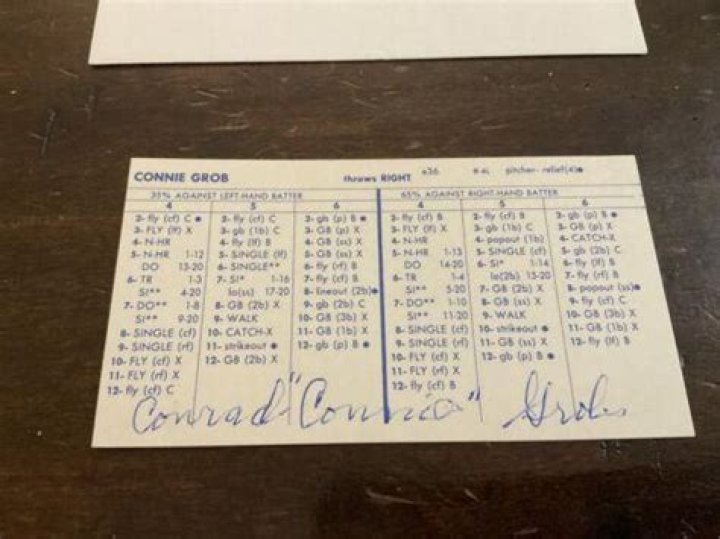 CONNIE GROB throws RIGHT e36 pitcher- relief(4)
35% AGAINST LEFT-HAND BATTER 65% AGAINST RIGHT-HAND BATTER
4
2- fly (cf) C ●
3- FLY (lf) X
4- N-HR
5- N-HR 1-12
DO 13-20
6- TR 1-3
SI** 4-20
7- DO** 1-8
SI** 9-20
8- SINGLE (cf)
9- SINGLE (rf)
10- FLY (cf) X
11- FLY (rf) X
12- fly (cf) C
5
2- fly (cf) C
3- gb (1b) C
4- fly (lf) B
5- SINGLE (lf)
6- SINGLE**
7- SI* 1-16
lo(ss) 17-20
8- GB (2b) X
9- WALK
10- CATCH-X
11- strikeout ●
12- GB (2b) X
6
2- gb (p) B ●
3- GB (p) X
4- GB (ss) X
5- GB (ss) X
6- fly (rf) B
7- fly (lf) B
8- lineout (2b)●
9- gb (2b) C
10- GB (3b) X
11- GB (1b) X
12- gb (p) B ●
4
2- fly (cf) B
3- FLY (rf) X
4- N-HR
5- N-HR 1-13
DO 14-20
6- TR 1-4
SI** 5-20
7- DO** 1-10
SI** 11-20
8- SINGLE (rf)
9- SINGLE (cf)
10- FLY (cf) X
11- FLY (lf) X
12- fly (cf) B
5
2- fly (cf) B
3- gb (1b) C
4- popout (1b)
5- SINGLE (cf)
6- SI* 1-14
lo(2b) 15-20
7- GB (2b) X
8- GB (ss) X
9- WALK
10- strikeout ●
11- GB (ss) X
12- gb (p) B ●
6
2- gb (p) B ●
3- GB (p) X
4- CATCH-X
5- gb (2b) C
6- fly (lf) B
7- fly (rf) B
8- popout (ss)●
9- fly (cf) C
10- GB (3b) X
11- GB (1b) X
12- fly (lf) B
Conrad "Connie" Grob